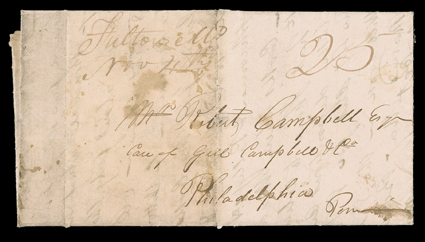 Fulton Mo
Nov 4th
25
Mr Robert Campbell Esqr
Care of Geil Campbell & Co
Philadelphia
Penn